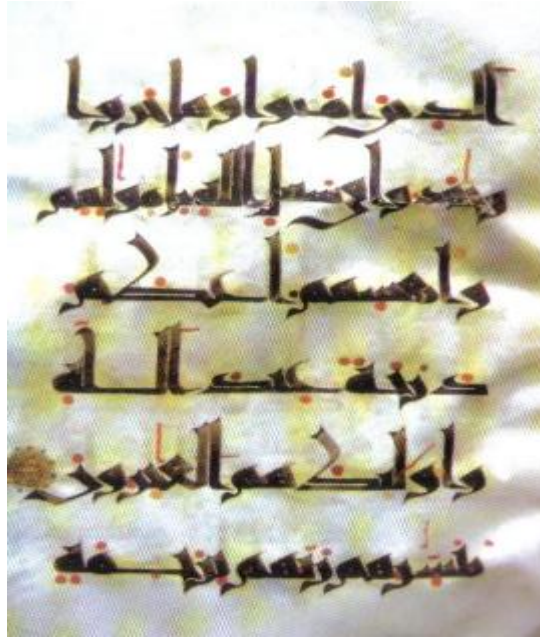 الذين امنوا وهاجروا
وجهدوا في سبيل الله بامولهم
وانفسهم اعظم
درجة عند الله
واولئك هم الفائزون
يبشرهم ربهم برحمة